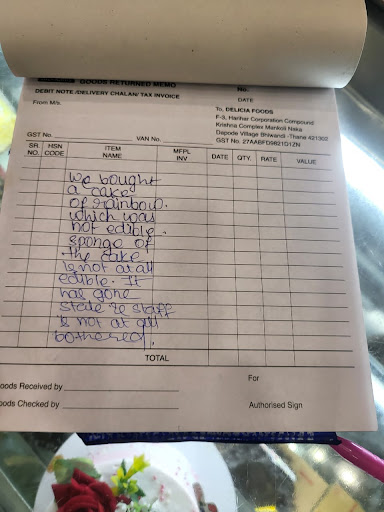 GOODS RETURNED MEMO
No.
DEBIT NOTE /DELIVERY CHALAN/ TAX INVOICE
DATE
From M/s.
To, DELICIA FOODS
F-9, Harihar Corporation Compound
Krishna Complex Mankoli Naka
Dapode Village Bhiwandi -Thane 421302
GST No. 27AABFD9821D1ZN
GST No.
VAN No.
SR. NO. HSN CODE ITEM NAME MFPL INV DATE QTY. RATE VALUE
We bought
a cake
of rainbow.
which was
not edible.
sponge of
the cake
is not at all
edible. It
has gone
stale & staff
is not at all
bothered.
TOTAL
oods Received by
For
oods Checked by
Authorised Sign